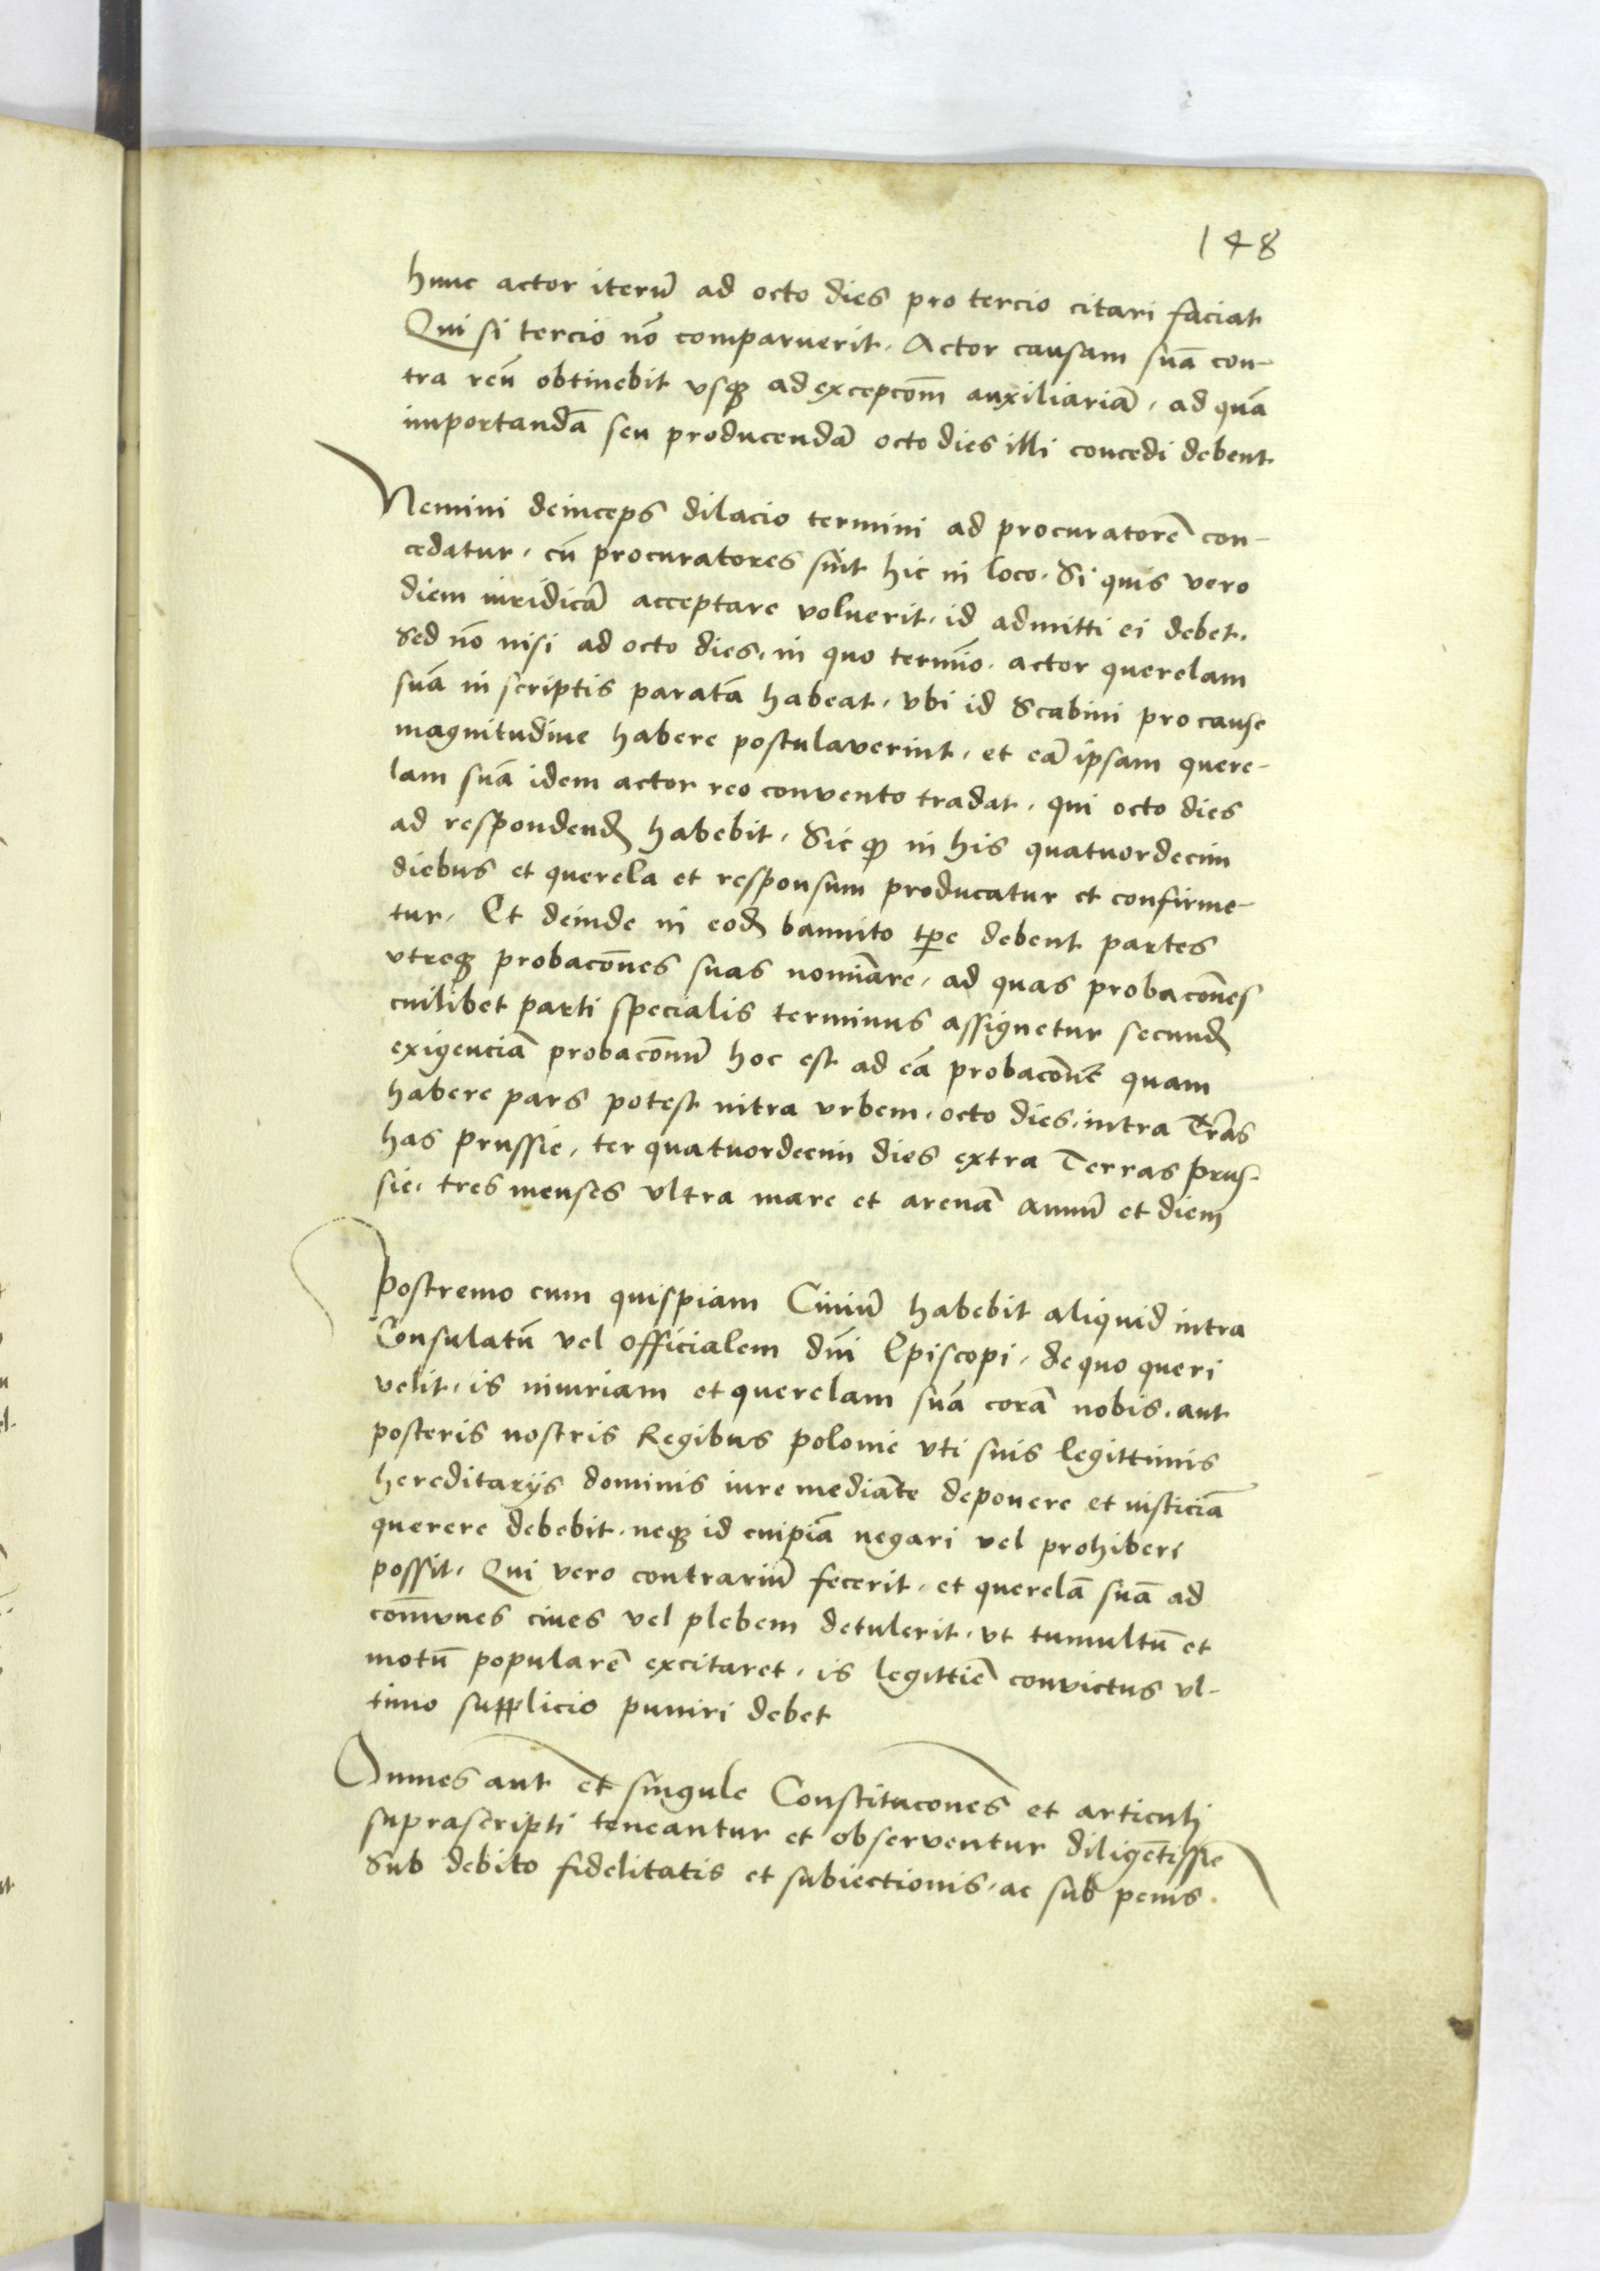 148
hunc actor iterū ad octo dies pro tercio citari faciat
Qui si tercio nō comparuerit. Actor causam suā con-
tra reū obtinebit vsq̨ ad excepcōm auxiliariā, ad quā
importandā seu producendā octo dies illi concedi debent
Nemini deinceps dilacio termini ad procuratorē con-
cedatur, cū procuratores sint hic in loco. Si quis vero
diem iuridicā acceptare voluerit, id admitti ei debet,
Sed nō nisi ad octo dies, in quo termīo, actor querelam
suā in scriptis paratā habeat, vbi id Scabini pro cause
magnitudine habere postulaverint, et eā ipsam quere-
lam suā idem actor reo convento tradat, qui octo dies
ad respondend̄ habebit, Sic q̨ in his quatuordecim
diebus et querela et responsum producatur et confirme-
tur, Et deinde in eod̄ bannito tp̄e debent partes
vtreq̨ probacōnes suas nomīare, ad quas probacōnes
cuilibet parti specialis terminus assignetur secund̄
exigenciā probacōnū hoc est ad eā probacōnē quam
habere pars potest intra vrbem, octo dies, intra Tr̄as
has prussie, ter quatuordecim dies extra Terras prus-
sie, tres menses vltra mare et arenā Annū et diem
Postremo cum quispiam Ciuiū habebit aliquid intra
Consulatū vel officialem dn̄i Episcopi, de quo queri
velit, is iniuriam et querelam suā corā nobis, aut
posteris nostris Regibus polonie vti suis legittimis
hereditariis dominis iure mediāte deponere et iusticiā
querere debebit, neq̨ id cuipiā negari vel prohiberi
possit, Qui vero contrariū fecerit, et querelā suā ad
com̄vnes ciues vel plebem detulerit, vt tumultū et
motū popularē excitaret, is legittiē convictus vl-
timo supplicio puniri debet
Omnes aut̄ et singule Constitucōnes et articuli
suprascripti teneantur et observentur diligētissīe
Sub debito fidelitatis et subiectionis, ac sub penis.